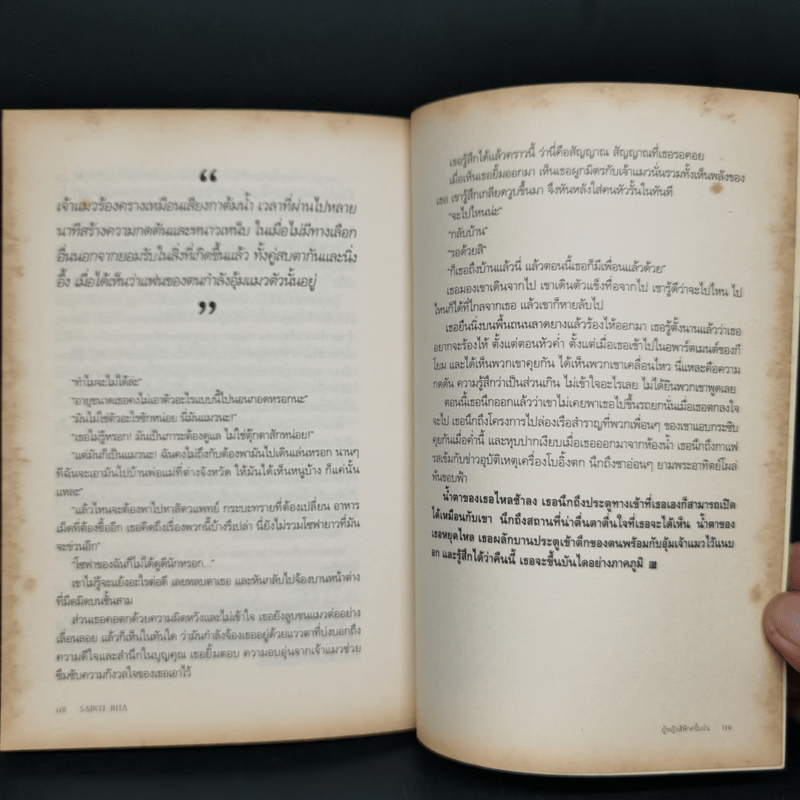 “
เจ้าแมวร้องครางเหมือนเสียงกาต้มน้ำ เวลาที่ผ่านไปหลาย
นาทีสร้างความกดดันและหนาวเหน็บ ในเมื่อไม่มีทางเลือก
อื่นนอกจากยอมรับในสิ่งที่เกิดขึ้นแล้ว ทั้งคู่สบตากันและนิ่ง
อึ้ง เมื่อได้เห็นว่าแฟนของตนกำลังอุ้มแมวตัวนั้นอยู่
”
“ทำไมจะไม่ได้ล่ะ”
“อายุขนาดเธอคงไม่เอาตัวอะไรแบบนี้ไปนอนกอดหรอกนะ”
“มันไม่ใช่ตัวอะไรซักหน่อย นี่มันแมวนะ!”
“เธอไม่รู้หรอก! มันเป็นภาระต้องดูแล ไม่ใช่ตุ๊กตาสักหน่อย!”
“แต่มันก็เป็นแมวนะ! ฉันคงไม่ถึงกับต้องพามันไปเดินเล่นหรอก นานๆ
ทีฉันจะเอามันไปบ้านพ่อแม่ที่ต่างจังหวัด ให้มันได้เห็นหนูบ้าง ก็แค่นั้น
แหละ”
“แล้วไหนจะต้องพาไปหาสัตวแพทย์ กระบะทรายที่ต้องเปลี่ยน อาหาร
เม็ดที่ต้องซื้ออีก เธอคิดถึงเรื่องพวกนี้บ้างรึเปล่า นี่ยังไม่รวมโซฟายาวที่มัน
จะข่วนอีก”
“โซฟาของฉันก็ไม่ได้ดูดีนักหรอก...”
เขาไม่รู้จะแย้งอะไรต่อดี เลยหลบตาเธอ และหันกลับไปจ้องบานหน้าต่าง
ที่มืดมิดบนชั้นสาม
ส่วนเธอคอตกด้วยความผิดหวังและไม่เข้าใจ เธอยังลูบขนแมวต่ออย่าง
เลื่อนลอย แล้วก็เห็นในทันใด ว่ามันกำลังจ้องเธออยู่ด้วยแววตาที่บ่งบอกถึง
ความดีใจและสำนึกในบุญคุณ เธอยิ้มตอบ ความอบอุ่นจากเจ้าแมวช่วย
ซึมซับความกังวลใจของเธอเอาไว้
118 SAINTE RITA
เธอรู้สึกได้แล้วคราวนี้ ว่านี่คือสัญญาณ สัญญาณที่เธอรอคอย
เมื่อเห็นเธอยิ้มออกมา เห็นเธอผูกมิตรกับเจ้าแมวนั่นรวมทั้งเห็นพลังของ
เธอ เขารู้สึกเกลียดวูบขึ้นมา จึงหันหลังใส่คนหัวรั้นในทันที
“จะไปไหนน่ะ”
“กลับบ้าน”
“รอด้วยสิ”
“ก็เธอถึงบ้านแล้วนี่ แล้วตอนนี้เธอก็มีเพื่อนแล้วด้วย”
เธอมองเขาเดินจากไป เขาเดินตัวแข็งทื่อจากไป เขารู้ดีว่าจะไปไหน ไป
ไหนก็ได้ที่ไกลจากเธอ แล้วเขาก็หายลับไป
เธอยืนนิ่งบนพื้นถนนลาดยางแล้วร้องไห้ออกมา เธอรู้ตั้งนานแล้วว่าเธอ
อยากจะร้องไห้ ตั้งแต่ตอนหัวค่ำ ตั้งแต่เมื่อเธอเข้าไปในอพาร์ตเมนต์ของกี
โยม และได้เห็นพวกเขาคุยกัน ได้เห็นพวกเขาเคลื่อนไหว นี่แหละคือความ
กดดัน ความรู้สึกว่าเป็นส่วนเกิน ไม่เข้าใจอะไรเลย ไม่ได้ยินพวกเขาพูดเลย
ตอนนี้เธอนึกออกแล้วว่าเขาไม่เคยพาเธอไปขึ้นรถยกนั่นเมื่อเธอตกลงใจ
จะไป เธอนึกถึงโครงการไปล่องเรือสำราญที่พวกเพื่อนๆ ของเขาแอบกระซิบ
คุยกันเมื่อค่ำนี้ และหุบปากเงียบเมื่อเธอออกมาจากห้องน้ำ เธอนึกถึงกาแฟ
รสเข้มกับข่าวอุบัติเหตุเครื่องโบอิ้งตก นึกถึงชาอ่อนๆ ยามพระอาทิตย์โผล่
พ้นขอบฟ้า
น้ำตาของเธอไหลช้าลง เธอนึกถึงประตูทางเข้าที่เธอเองก็สามารถเปิด
ได้เหมือนกับเขา นึกถึงสถานที่น่าตื่นตาตื่นใจที่เธอจะได้เห็น น้ำตาของ
เธอหยุดไหล เธอผลักบานประตูเข้าตึกของตนพร้อมกับอุ้มเจ้าแมวไว้แนบ
อก และรู้สึกได้ว่าคืนนี้ เธอจะขึ้นบันไดอย่างภาคภูมิ
119